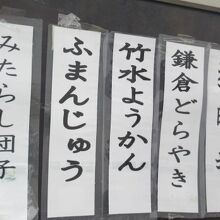 鎌倉どらやき
竹水ようかん
ふまんじゅう
みたらし団子